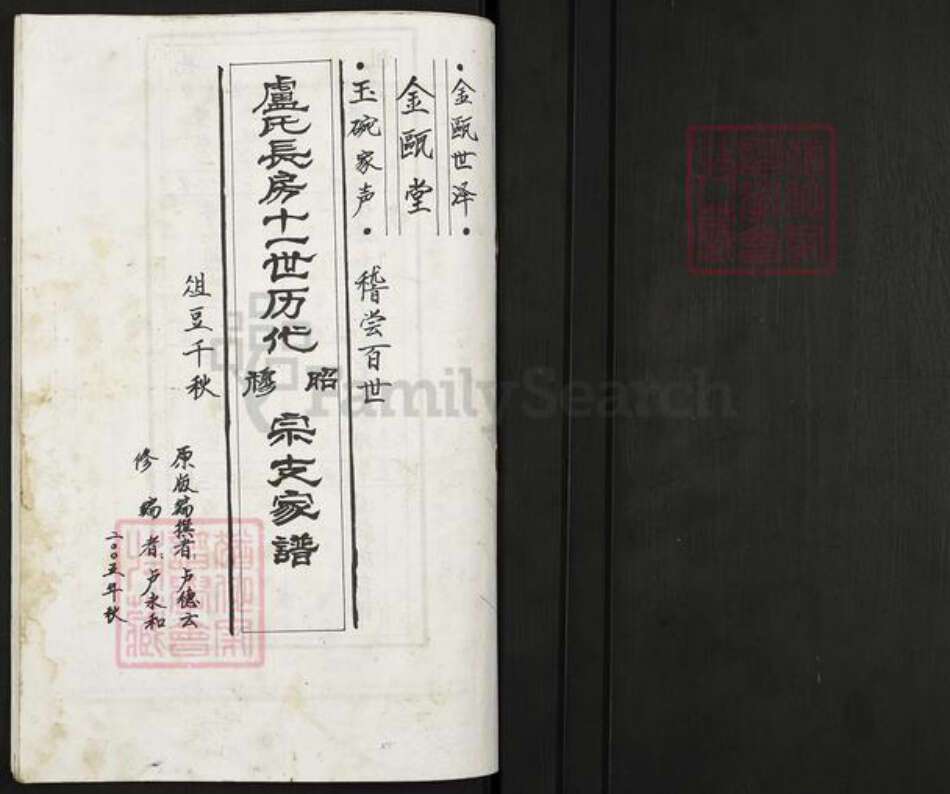 金瓯世泽
金瓯堂
玉碗家声
稽尝百世
盧氏長房十一世历代昭穆宗支家譜
俎豆千秋
原版编撰者：卢德云
修编者：卢永和
二〇〇五年秋
FamilySearch